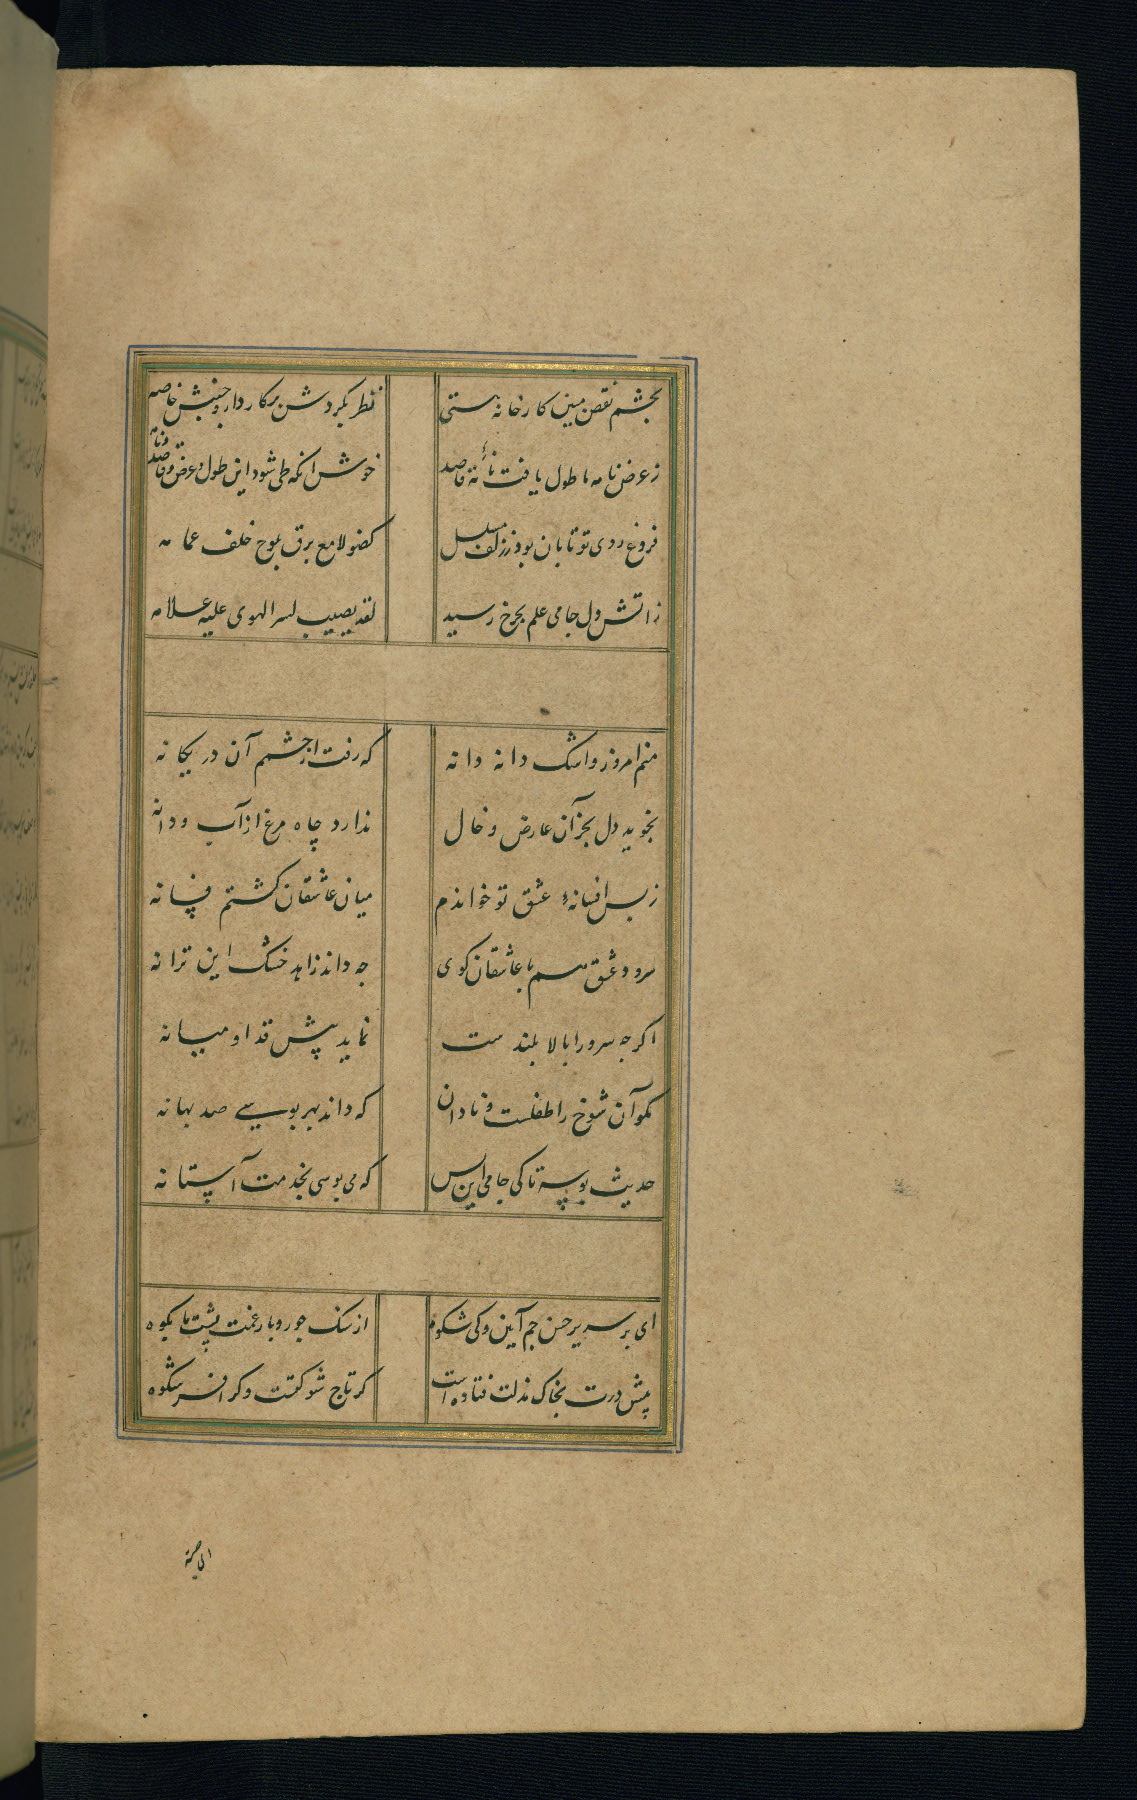 بچشم نقص مبین کارخانه هستی نظر بگردش پرکار دار و جنبش خامه
ز عرض نامه ما طول یافت نامهٔ قاصد خوش انکه طی شود این طول و عرض و قاصد و نامه
فروغ روی تو تابان بود ز زلف مسلسل کضو لامع برق یلوح خلف غمامه
ز اتش دل جامی علم بچرخ رسید لقد یصیب لسر الهوی علیه علامه
منم امروز و اشک دانه دانه که رفت از چشم آن در یکانه
نجوید دل بجز آن عارض و خال ندارد چاه مرغ از آب و دانه
ز بس افسانهٔ عشق تو خواندم میان عاشقان کشتم فسانه
سرود عشق هم با عاشقان کوی چه داند زاهد خشک این ترانه
اکرچه سرو را بالا بلندست نماید پیش قد او میانه
مکو آن شوخ را طفلست و نادان که داند بهر بوسی صد بهانه
حدیث بوسه تا کی جامی این بس که می بوسی بخدمت آستانه
ای بر سریر حسن جم آیین و کی شکوه از سنک جور و بار غمت پشت ما بکوه
پیش درت بخاک مذلت فتاده است کر تاج شوکتست و کر افسر شکوه